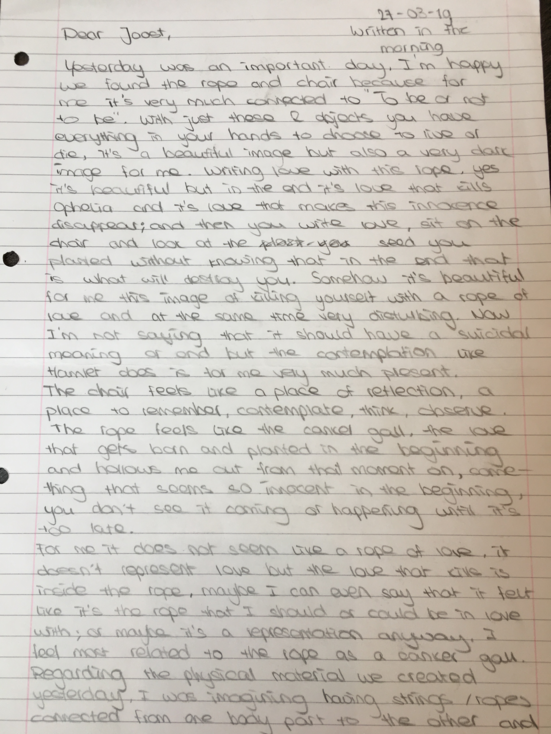 27-03-19
Dear Joost,
Written in the
morning
Yesterday was an important day. I'm happy
we found the rope and chair because for
me it's very much connected to "To be or not
to be". With just these 2 objects you have
everything in your hands to choose to live or
die, it's a beautiful image but also a very dark
image for me. Writing love with this rope, yes
it's beautiful but in the end it's love that kills
Ophelia and it's love that makes this innocence
disappear; and then you write love, sit on the
chair and look at the seed you
planted without knowing that in the end that
is what will destroy you. Somehow it's beautiful
for me this image of killing yourself with a rope of
love and at the same time very disturbing. Now
I'm not saying that it should have a suicidal
meaning or end but the contemplation like
Hamlet does is for me very much present.
The chair feels like a place of reflection, a
place to remember, contemplate, think, observe.
The rope feels like the cancer gall, the love
that gets born and planted in the beginning
and hollows me out from that moment on, some-
thing that seems so innocent in the beginning,
you don't see it coming or happening until it's
too late.
For me it does not seem like a rope of love, it
doesn't represent love but the love that is
inside the rope, maybe I can even say that it felt
like it's the rope that I should or could be in love
with; or maybe it's a representation anyway. I
feel most related to the rope as a cancer gall.
Regarding the physical material we created
yesterday, I was imagining having strings/ropes
connected from one body part to the other and